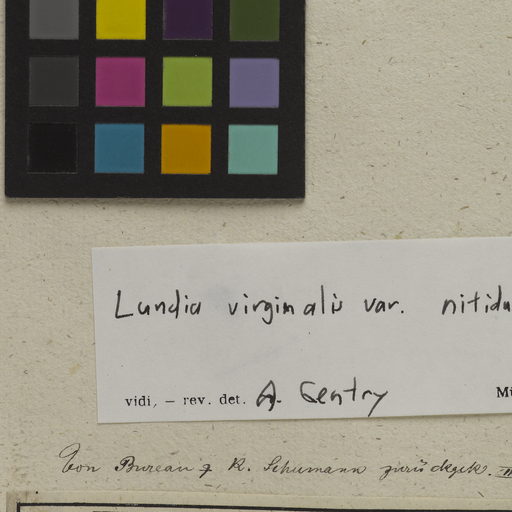 Lundia virginalis var. nitidu
vidi, – rev. det. A. Gentry
Von Bureau & K. Schumann zurückgek.